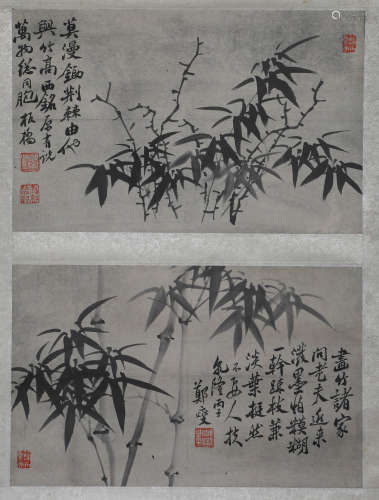 莫漫鋤荊棘由他
與竹高西銘原有說
萬物總同胞板橋
畫竹諸家
問老夫近來
淡墨怕糢糊
一幹疎枝兼
淡葉挺然
不要人扶
乾隆丙子
鄭燮